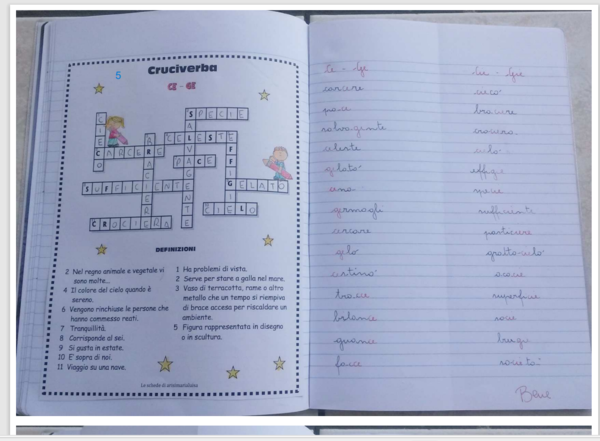 5
Cruciverba
CE - GE
SPECIE
CIECO
SALVAGENTE
CELESTE
CARCERE
PACE
SUFFICIENTE
GELATO
CIELO
CROCIERA
DEFINIZIONI
2 Nel regno animale e vegetale vi
sono molte...
4 Il colore del cielo quando è
sereno.
6 Vengono rinchiuse le persone che
hanno commesso reati.
7 Tranquillità.
8 Corrisponde al sei.
9 Si gusta in estate.
10 E' sopra di noi.
11 Viaggio su una nave.
1 Ha problemi di vista.
2 Serve per stare a galla nel mare.
3 Vaso di terracotta, rame o altro
metallo che un tempo si riempiva
di brace accesa per riscaldare un
ambiente.
5 Figura rappresentata in disegno
o in scultura.
ce - ge
carcere
pace
salvagente
celeste
gelato
cena
germogli
cercare
gelo
bilance
guance
cie - gie
cieco
braciere
crociera
cielo
effigie
specie
sufficiente
pasticciere
superficie
società